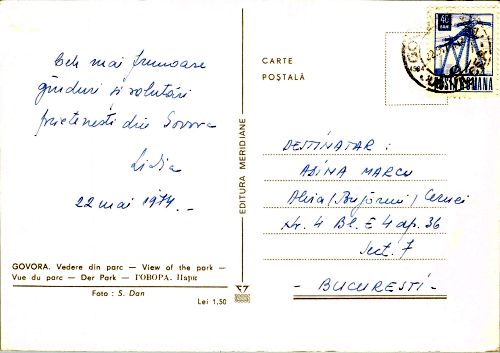 Cele mai frumoase
gînduri și salutări
prietenești din Govora
Lidia
22 mai 1974.
GOVORA. Vedere din parc — View of the park —
Vue du parc — Der Park — ГОВОРА. Парк
Foto : S. Dan
Lei 1,50
EDITURA MERIDIANE
CARTE
POȘTALĂ
40
BAN
POSTA ROMANA
DESTINATAR :
ADINA MARCU
Aleia Cernei
Nr. 4 Bl. E 4 ap. 36
Sect. 7
- BUCUREȘTI -